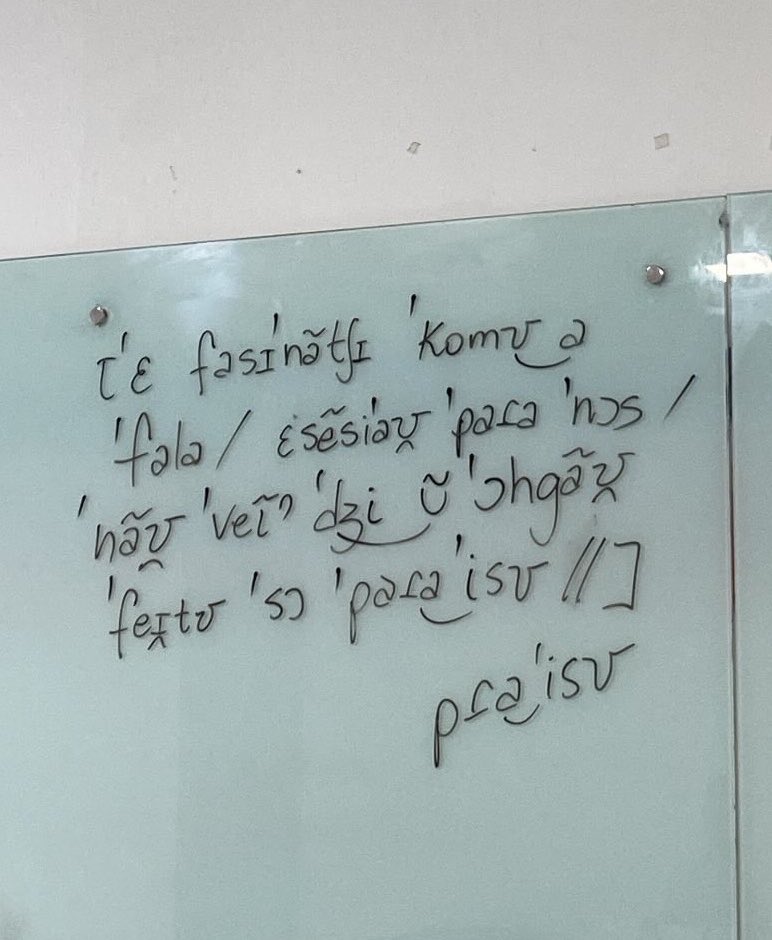 [ˈɛ fasɪˈnãtʃɪ ˈkomʊ‿a
ˈfala/ ɛsẽsiˈaʊ̯ ˈpaɾa ˈnɔs /
ˈnãʊ̯̃ ˈveɪ̃ɲ ˈdʒi‿ʊ̃ ˈɔhgãʊ̯̃
ˈfeɪ̯tʊ ˈsɔ ˈpaɾa‿ˈisʊ //]
pɾa‿ˈisʊ